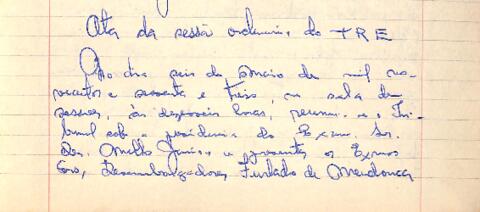 Ata da sessã ordinaria do TRE
Ao dia seis de março de mil no-
vecentos e sessenta e tres, na sala de
sessões, às dezesseis horas, reuniu-se o Tri-
bunal sob a presidencia do Exmo. Snr.
Des. Junior e presentes os Exmos
Snrs, Desembargadores Furtado de Mendonça